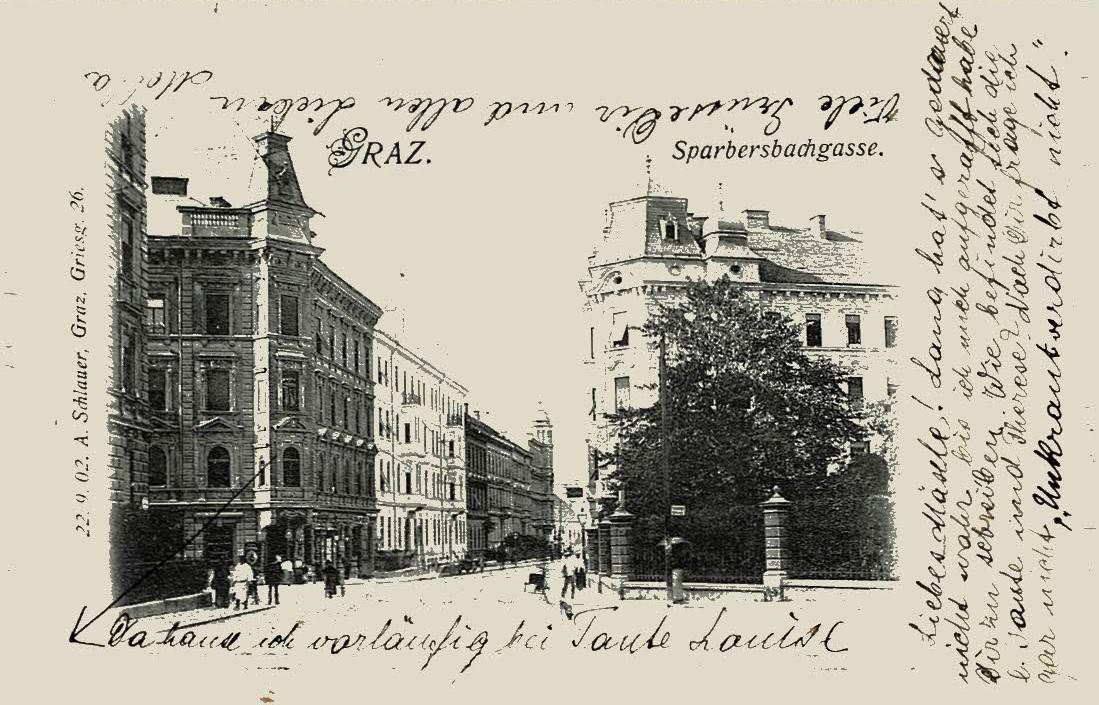 GRAZ.
Sparbersbachgasse.
22. 9. 02. A. Schlauer, Graz, Griesg. 26.
Liebes Mäsele! Lang hat's gedauert
nicht wahr, bis ich mich aufgerafft habe
Dir zu schreiben. Wie befindet sich die
l. Tante und Therese? Nach Dir frage ich
gar nicht, „Unkraut verdirbt nicht".
Da hause ich vorläufig bei Tante Louise
Viele Grüsse Dir und allen Lieben